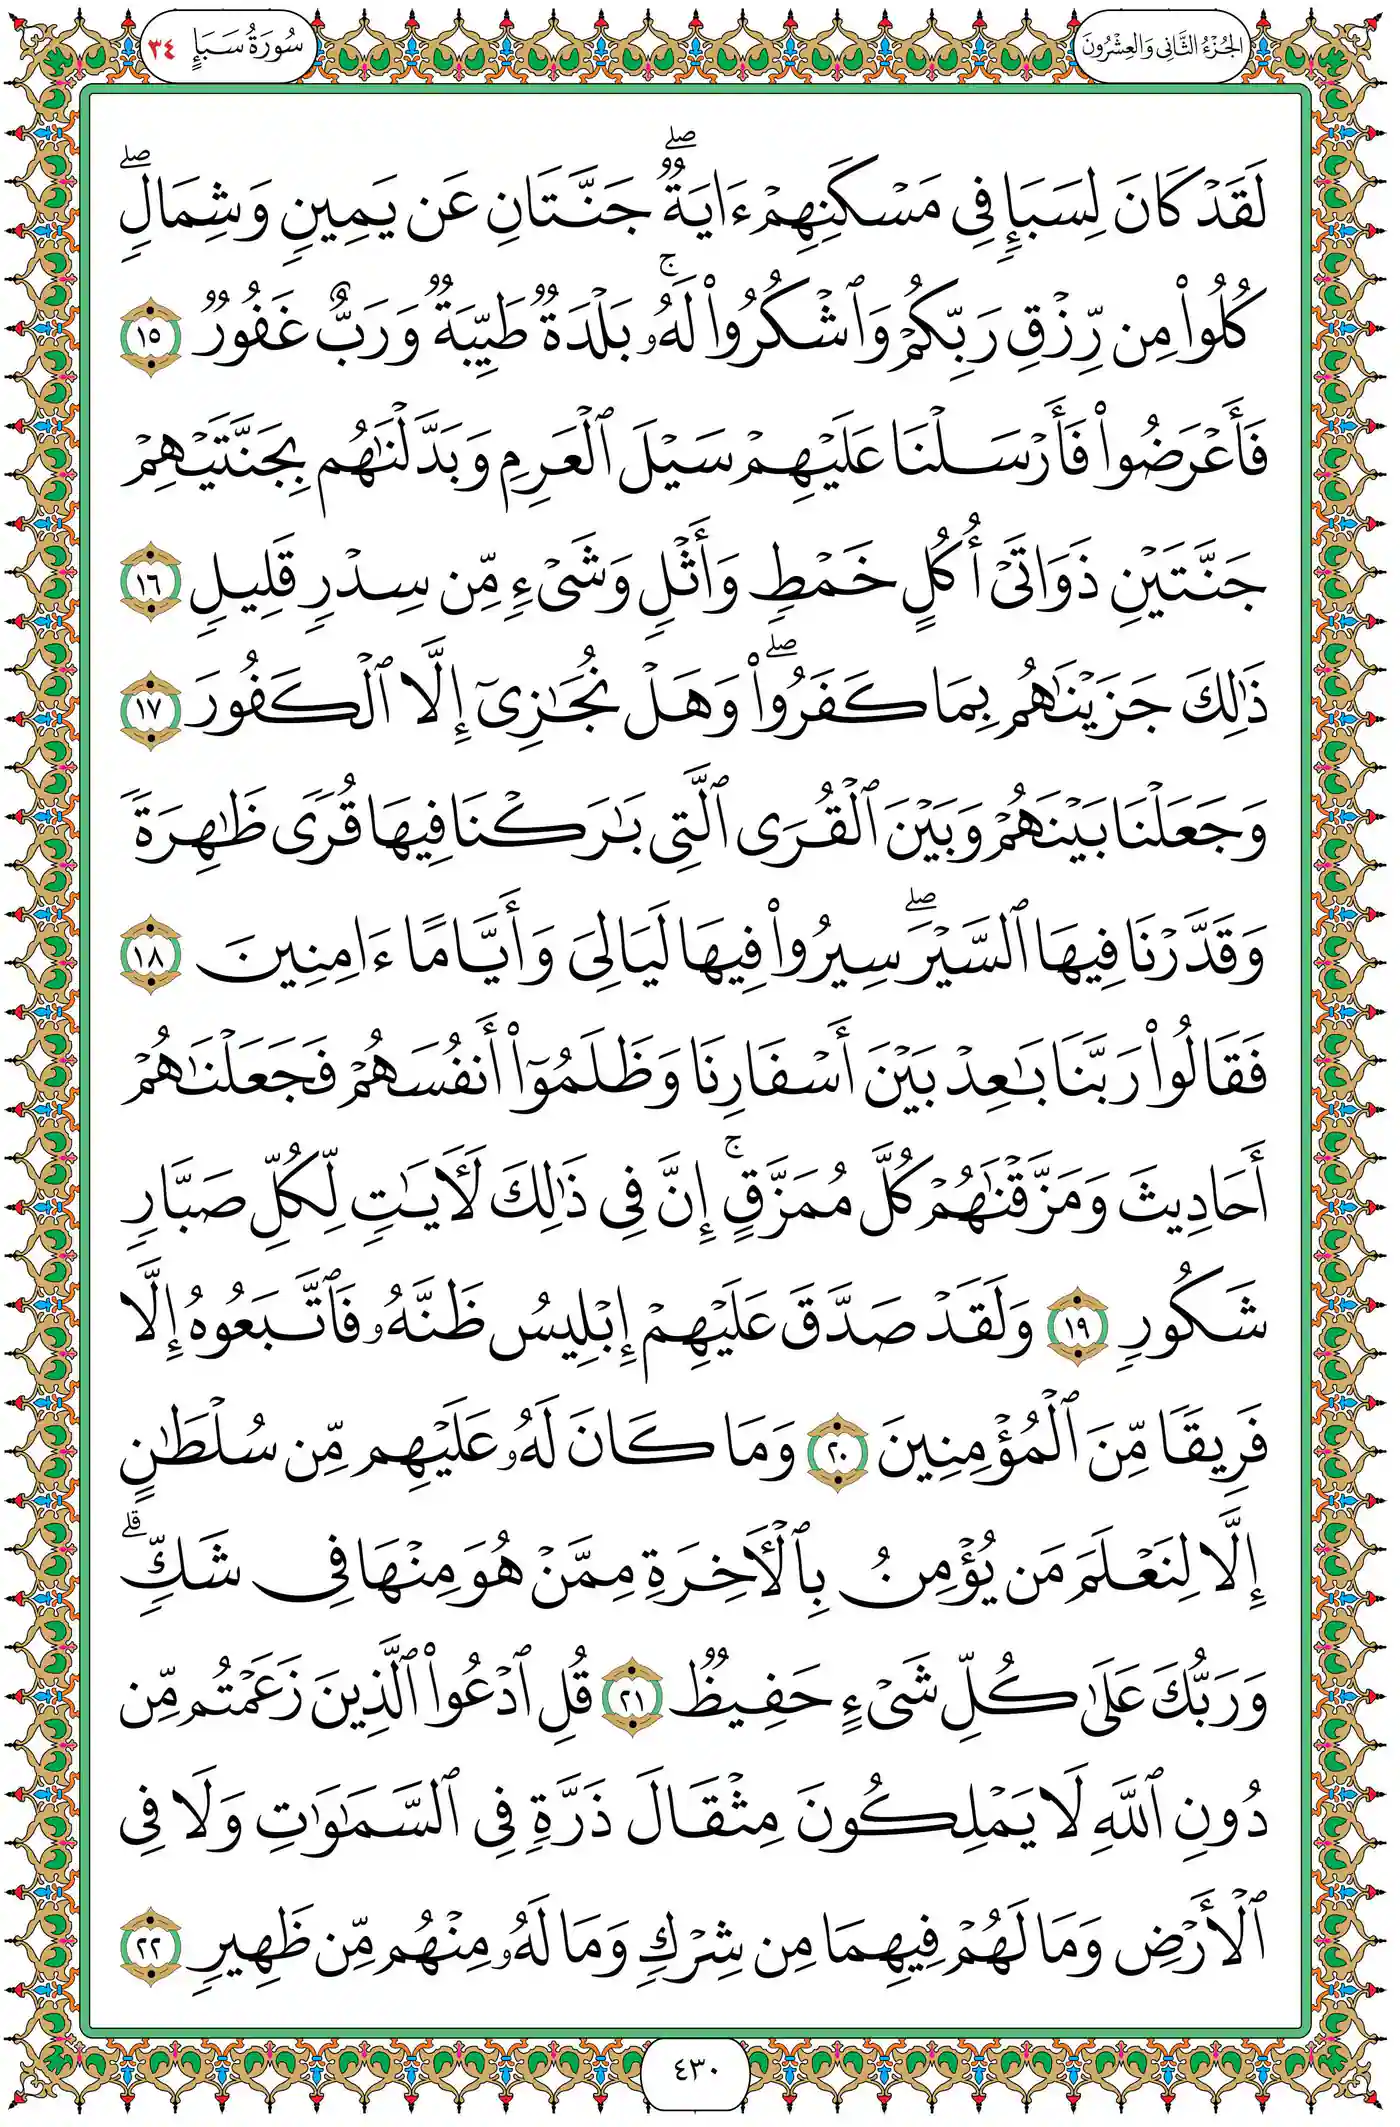 الجُزْءُ الثَّانِي وَالعِشْرُونَ
سُورَةُ سَبَإٍ ٣٤
لَقَدْ كَانَ لِسَبَإٍ فِي مَسْكَنِهِمْ ءَايَةٌ ۖ جَنَّتَانِ عَن يَمِينٍ وَشِمَالٍ ۖ
كُلُوا۟ مِن رِّزْقِ رَبِّكُمْ وَٱشْكُرُوا۟ لَهُۥ ۚ بَلْدَةٌ طَيِّبَةٌ وَرَبٌّ غَفُورٌ ١٥
فَأَعْرَضُوا۟ فَأَرْسَلْنَا عَلَيْهِمْ سَيْلَ ٱلْعَرِمِ وَبَدَّلْنَٰهُم بِجَنَّتَيْهِمْ
جَنَّتَيْنِ ذَوَاتَىْ أُكُلٍ خَمْطٍ وَأَثْلٍ وَشَىْءٍ مِّن سِدْرٍ قَلِيلٍ ١٦
ذَٰلِكَ جَزَيْنَٰهُم بِمَا كَفَرُوا۟ ۖ وَهَلْ نُجَٰزِىٓ إِلَّا ٱلْكَفُورَ ١٧
وَجَعَلْنَا بَيْنَهُمْ وَبَيْنَ ٱلْقُرَى ٱلَّتِى بَٰرَكْنَا فِيهَا قُرًى ظَٰهِرَةً
وَقَدَّرْنَا فِيهَا ٱلسَّيْرَ ۖ سِيرُوا۟ فِيهَا لَيَالِىَ وَأَيَّامًا ءَامِنِينَ ١٨
فَقَالُوا۟ رَبَّنَا بَٰعِدْ بَيْنَ أَسْفَارِنَا وَظَلَمُوٓا۟ أَنفُسَهُمْ فَجَعَلْنَٰهُمْ
أَحَادِيثَ وَمَزَّقْنَٰهُمْ كُلَّ مُمَزَّقٍ ۚ إِنَّ فِى ذَٰلِكَ لَءَايَٰتٍ لِّكُلِّ صَبَّارٍ
شَكُورٍ ١٩ وَلَقَدْ صَدَّقَ عَلَيْهِمْ إِبْلِيسُ ظَنَّهُۥ فَٱتَّبَعُوهُ إِلَّا
فَرِيقًا مِّنَ ٱلْمُؤْمِنِينَ ٢٠ وَمَا كَانَ لَهُۥ عَلَيْهِم مِّن سُلْطَٰنٍ
إِلَّا لِنَعْلَمَ مَن يُؤْمِنُ بِٱلْءَاخِرَةِ مِمَّنْ هُوَ مِنْهَا فِى شَكٍّ ۗ
وَرَبُّكَ عَلَىٰ كُلِّ شَىْءٍ حَفِيظٌ ٢١ قُلِ ٱدْعُوا۟ ٱلَّذِينَ زَعَمْتُم مِّن
دُونِ ٱللَّهِ لَا يَمْلِكُونَ مِثْقَالَ ذَرَّةٍ فِى ٱلسَّمَٰوَٰتِ وَلَا فِى
ٱلْأَرْضِ وَمَا لَهُمْ فِيهِمَا مِن شِرْكٍ وَمَا لَهُۥ مِنْهُم مِّن ظَهِيرٍ ٢٢
٤٣٠